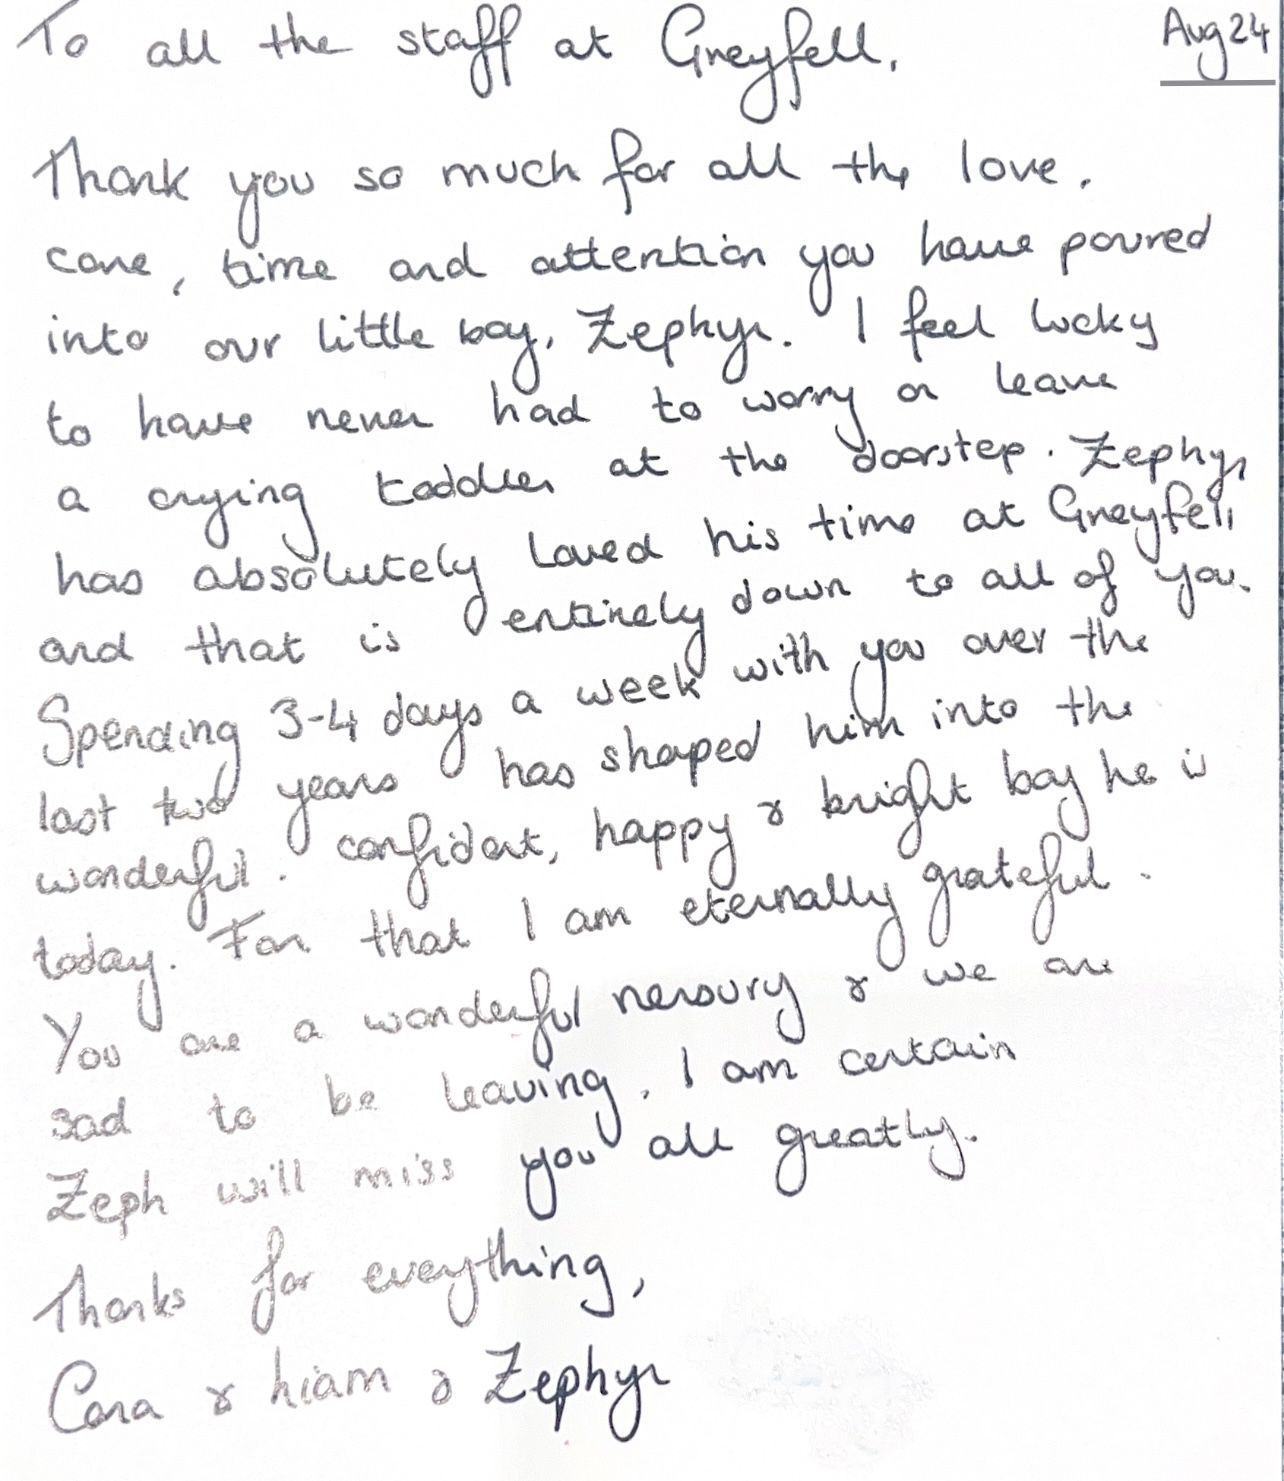 To all the staff at Greyfell,
Aug 24
Thank you so much for all the love,
care, time and attention you have poured
into our little boy, Zephyr. I feel lucky
to have never had to worry or leave
a crying toddler at the doorstep. Zephyr
has absolutely loved his time at Greyfell
and that is entirely down to all of you.
Spending 3-4 days a week with you over the
last two years has shaped him into the
wonderful, confident, happy & bright boy he is
today. For that I am eternally grateful.
You are a wonderful nersury & we are
sad to be leaving. I am certain
Zeph will miss you all greatly.
Thanks for everything,
Cara & Liam & Zephyr